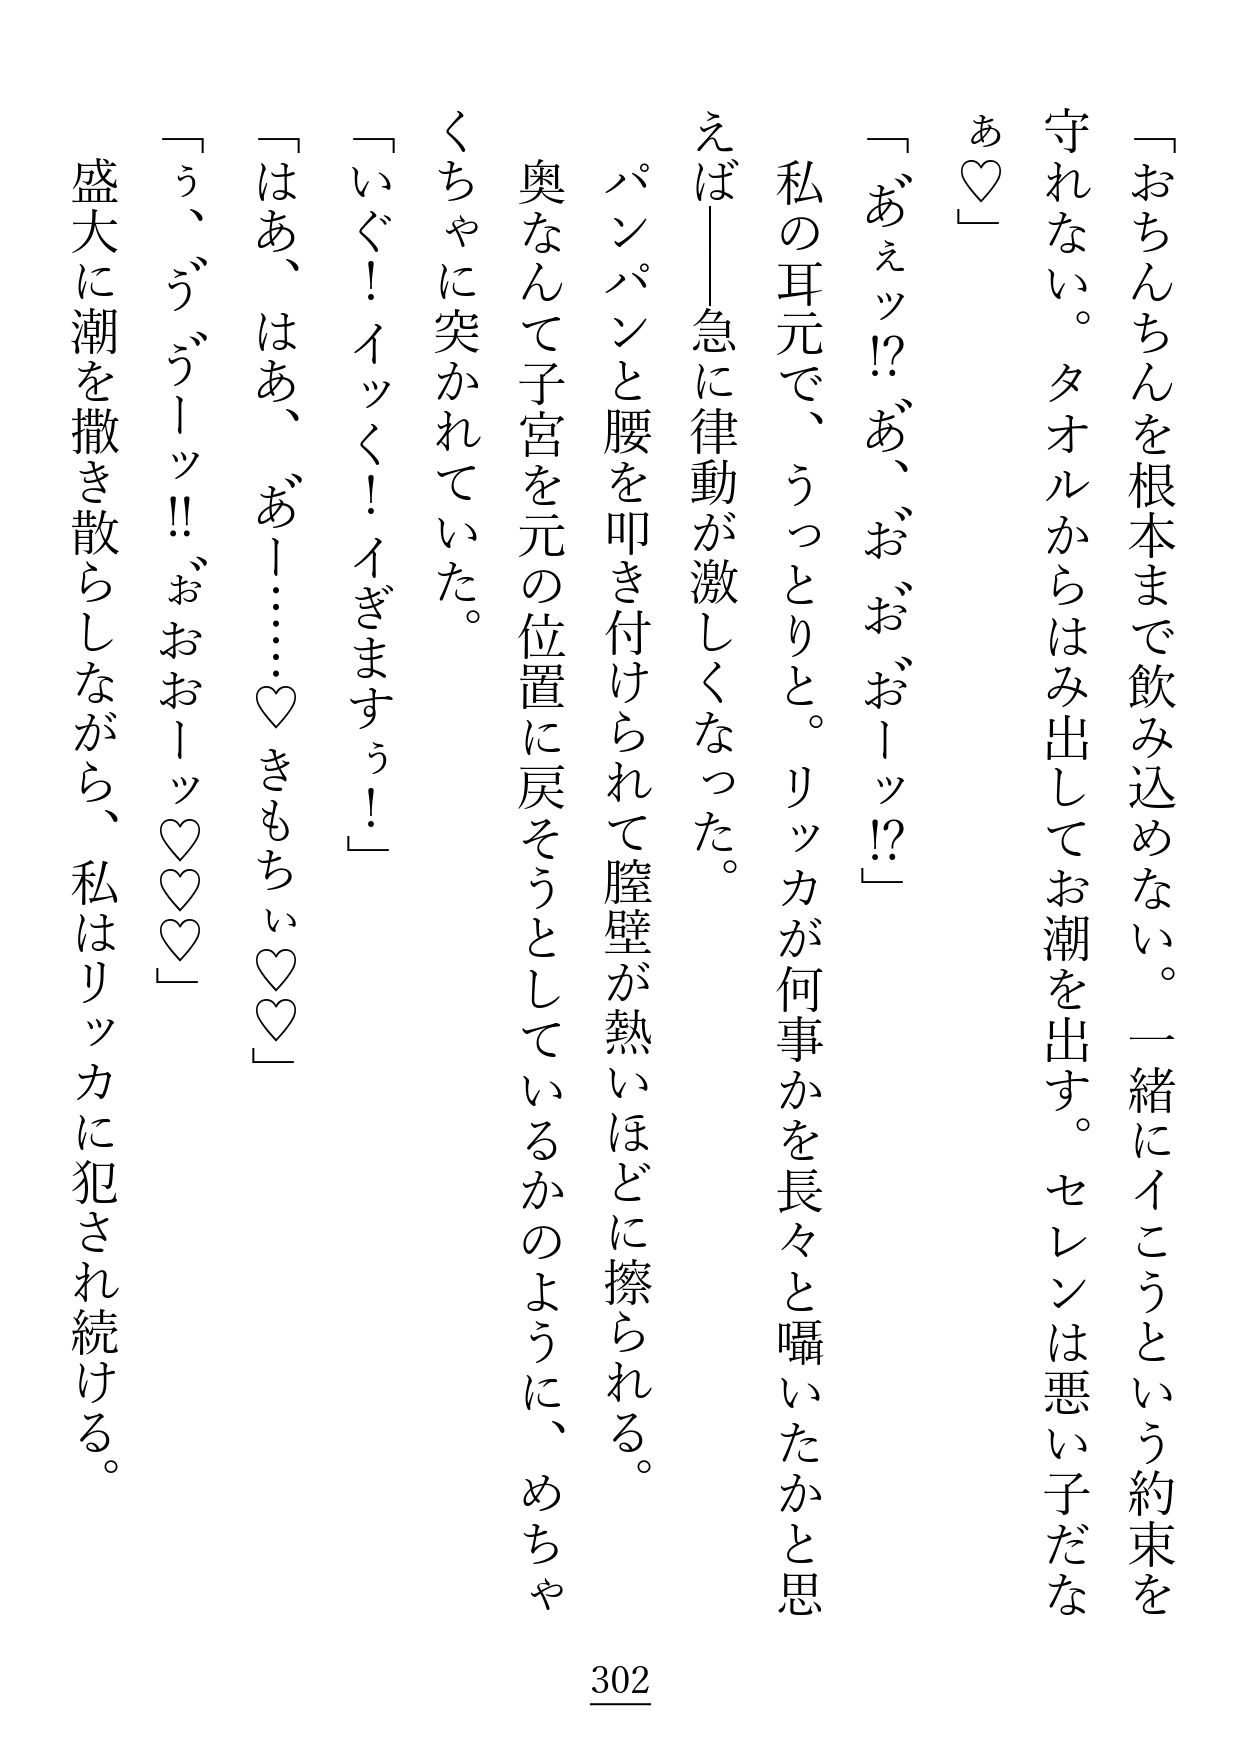 「おちんちんを根本まで飲み込めない。一緒にイこうという約束を
守れない。タオルからはみ出してお潮を出す。セレンは悪い子だな
ぁ♡」
「あ゙ぇッ⁉あ゙、お゙お゙お゙ーッ⁉」
　私の耳元で、うっとりと。リッカが何事かを長々と囁いたかと思
えば――急に律動が激しくなった。
　パンパンと腰を叩き付けられて膣壁が熱いほどに擦られる。
　奥なんて子宮を元の位置に戻そうとしているかのように、めちゃ
くちゃに突かれていた。
「いぐ！イッく！イぎますぅ！」
「はあ、はあ、あ゙ー……♡きもちぃ♡♡」
「ぅ、ゔゔーッ‼ぉ゙おおーッ♡♡♡」
　盛大に潮を撒き散らしながら、私はリッカに犯され続ける。
302